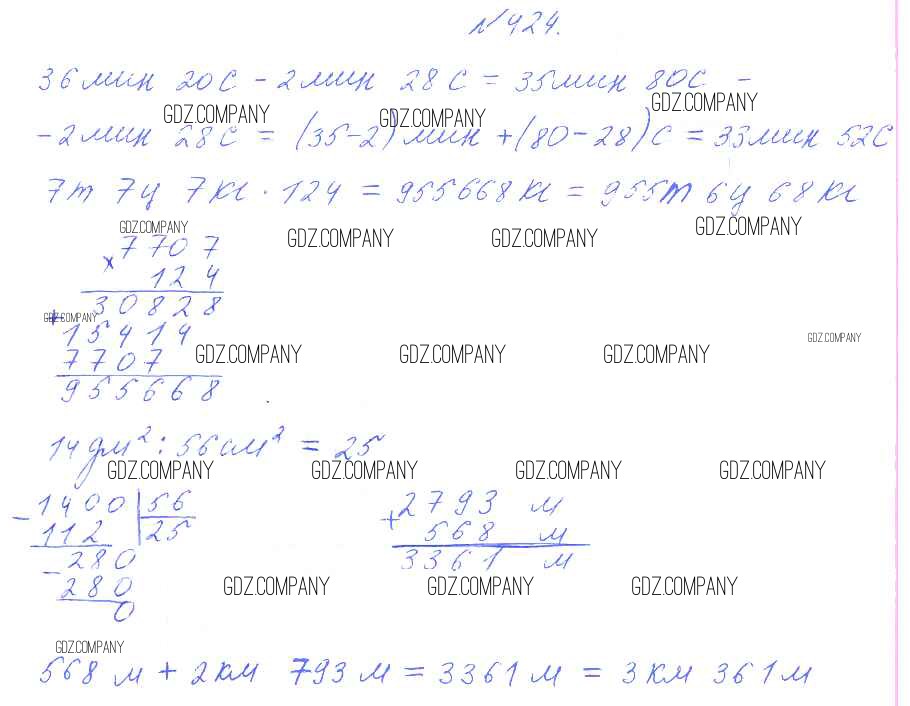 №424.
36 мин 20 с - 2 мин 28 с = 35 мин 80 с -
GDZ.COMPANY GDZ.COMPANY GDZ.COMPANY
- 2 мин 28 с = (35-2) мин + (80-28) с = 33 мин 52 с
7 т 7 ц 7 кг · 124 = 955668 кг = 955 т 6 ц 68 кг
GDZ.COMPANY GDZ.COMPANY GDZ.COMPANY GDZ.COMPANY
7707
× 124
30828
GDZ.COMPANY
+ 15414
GDZ.COMPANY
7707 GDZ.COMPANY GDZ.COMPANY GDZ.COMPANY
955668
14 дм² : 56 см² = 25
GDZ.COMPANY GDZ.COMPANY GDZ.COMPANY GDZ.COMPANY
- 1400 | 56
112 | 25
- 280
280
0
+ 2793 м
568 м
3361 м
GDZ.COMPANY GDZ.COMPANY GDZ.COMPANY
GDZ.COMPANY
568 м + 2 км 793 м = 3361 м = 3 км 361 м